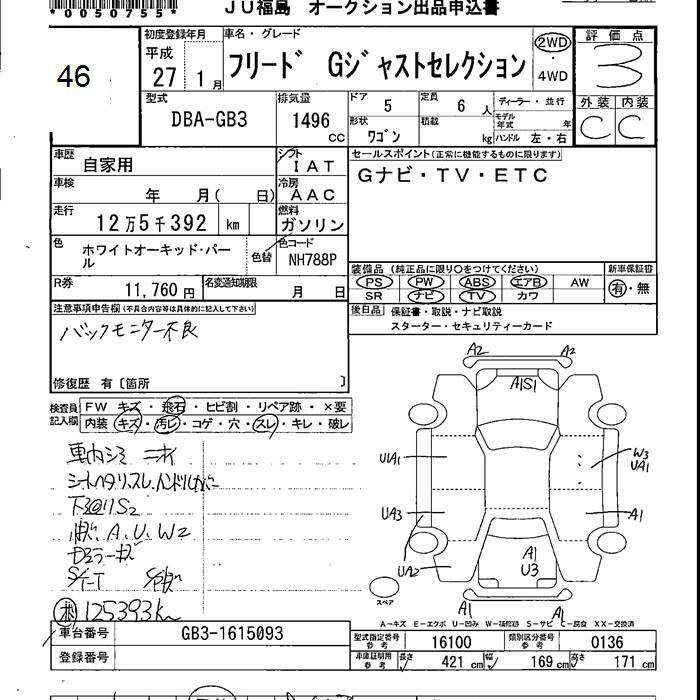 *0050755*
JU福島 オークション出品申込書
46
初度登録年月
平成
27 1月
車名・グレード
フリード Gジャストセレクション
2WD
・
4WD
評価点
3
外装 内装
C C
型式
DBA-GB3
排気量
1496 cc
ドア 5
定員 6人
ディーラー・並行
形状 ワゴン
積載 kg
モデル年式 年
ハンドル 左・右
車歴 自家用
シフト IAT
セールスポイント(正常に機能するものに限ります)
Gナビ・TV・ETC
車検 年 月( 日)
冷房 AAC
走行 12万5千392 km
燃料 ガソリン
色 ホワイトオーキッド・パール
色替
色コード NH788P
R券 11,760円
名変通知期限 月 日
装備品 (純正品に限り〇をつけてください)
PS PW ABS エアB AW
SR ナビ TV カワ
新車保証書
有・無
後日品 保証書・取説・ナビ取説
スターター・セキュリティーカード
注意事項申告欄(不具合内容等は具体的に記入して下さい)
バックモニター不良
修復歴 有〔箇所 〕
検査員記入欄
FW キズ・飛石・ヒビ割・リペア跡・×要
内装 キズ・汚レ・コゲ・穴・スレ・キレ・破レ
車内シミ ニオイ
シートヘタリ、スレ、ハンドルカバー
下回りS2
A、U、W2
125393km
A2 A2
A1S1
U1A1
W3
UA1
UA3
A1
UA2
A1
U3
スペア
A1 A1
A-キズ E-エクボ U-凹み W-補修跡 S-サビ C-腐食 XX-交換済
車台番号 GB3-1615093
登録番号
型式指定番号 参考 16100
類別区分番号 参考 0136
車庫証明用 参考 長さ 421cm 幅 169cm 高さ 171cm